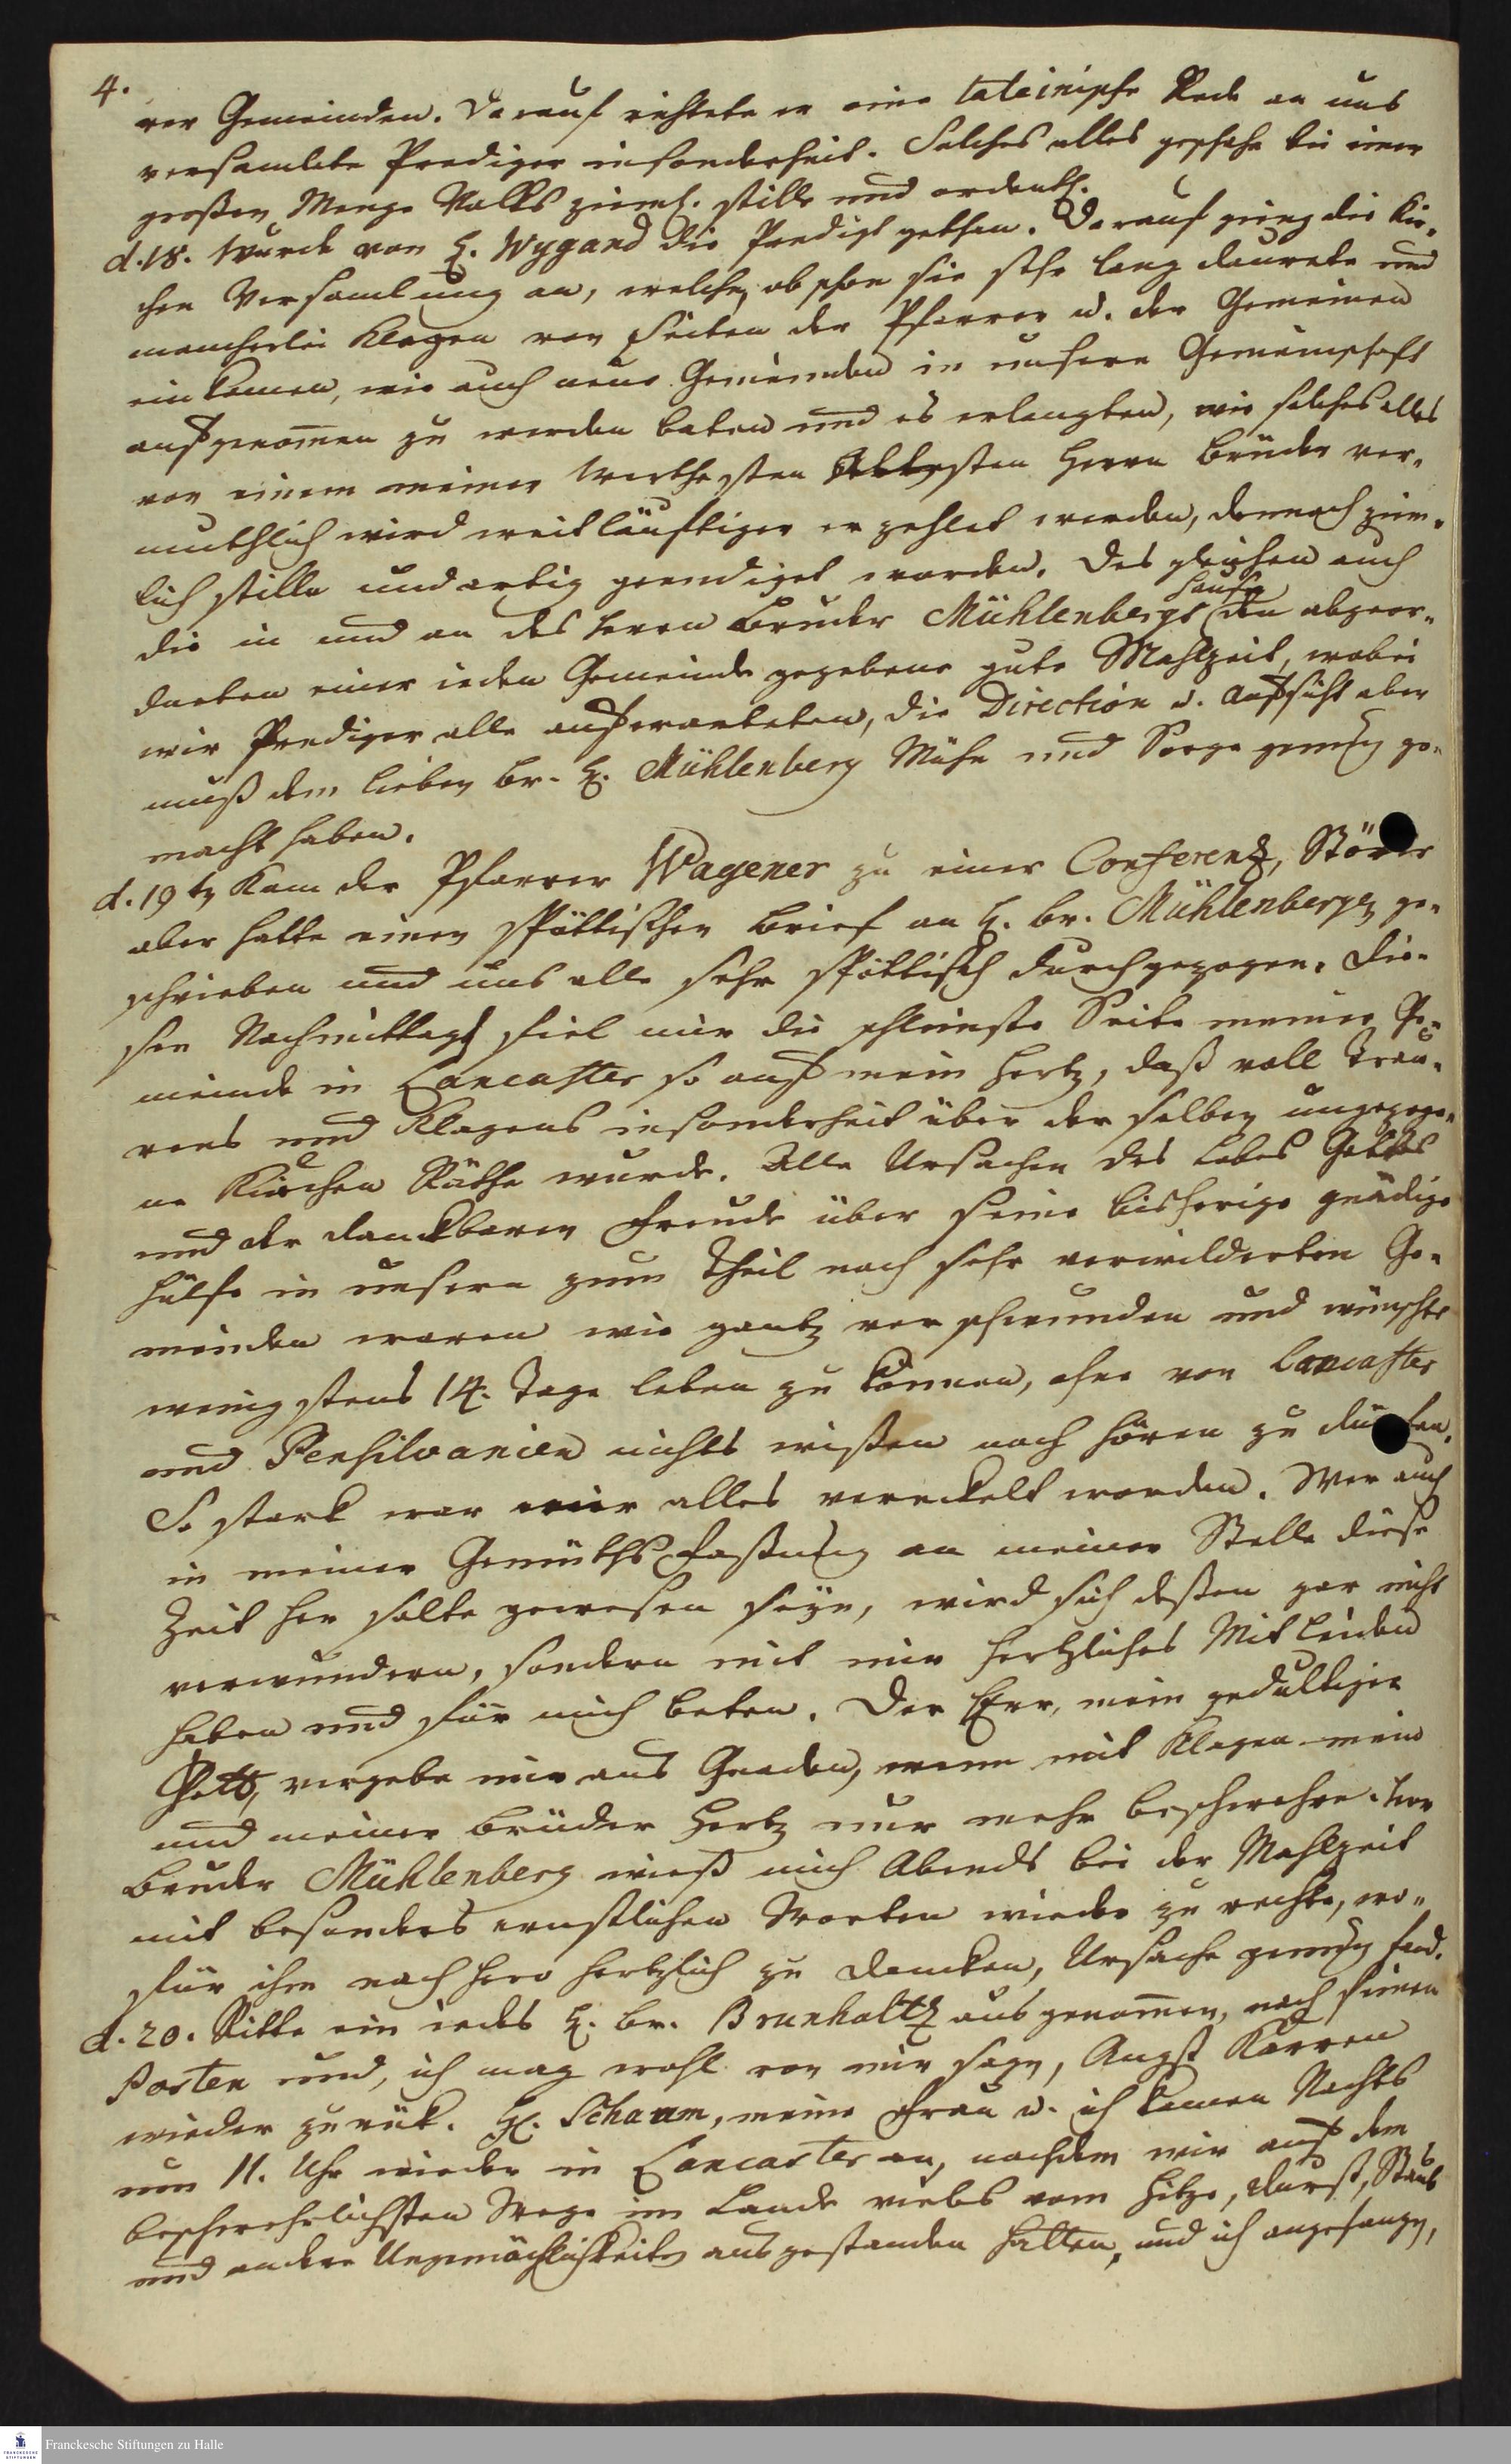 4.
rer Gemeinden. Darauf richtete er eine lateinische Rede an uns
versamlete Prediger insonderheit. Solches alles geschahe bei einer
großen Menge Volks zieml. stille und ordentl.
d. 18. wurde von H. Wygand die Predigt gethan. Darauf gieng die Kir-
chen Versamlung an, welche, ob schon sie sehr lang daurete und
mancherlei Klagen von Seiten der Pfarrer u. der Gemeinen
einkamen, wie auch neue Gemeinden in unsere Gemeinschaft
aufgenom̄en zu werden baten und es erlangten, wie solches alles
von einem meiner werthesten Herrn Brüder ver-
muthlich wird weitläuftiger erzehlet werden, dennoch ziem-
lich stille und artig geendiget worden. Desgleichen auch
Hause
die in und an des Herrn Bruder Mühlenbergs den abgeor-
dneten einer ieden Gemeinde gegebene gute Mahlzeit, wobei
wir Prediger alle aufwarteten, die Direction u. Aufsicht aber
muß dem lieben Br. H. Mühlenberg Mühe und Sorge genug ge-
macht haben.
d. 19 tn kam der Pfarrer Wagener zu einer Conferenz, Stöver
aber hatte einen spöttischen Brief an H. Br. Mühlenbergen ge-
schrieben und uns alle sehr spöttisch durchgezogen. Die-
sen Nachmittags fiel mir die schlimste Seite meiner Ge-
meinde in Lancaster so auf mein Hertz, daß voll Trau-
rens und Klagens insonderheit über derselben ungezoge-
ne Kirchen Räthe wurde. Alle Ursachen des Lobes Gottes
und der danckbaren Freude über seine bisherige gnädige
Hülfe in unsern zum Theil noch sehr verwilderten Ge-
meinden waren wie gantz verschwunden und wünschte
wenigstens 14. Tage leben zu können, ohne von Lancaster
und Pensilvanien nichts wißen noch hören zu dürfen.
So stark war mir alles vereckelt worden. Wer auch
in meiner Gemüths Faßung an meiner Stelle diese
Zeit her solte gewesen seyn, wird sich deßen gar nicht
verwundern, sondern mit mir hertzliches Mitleiden
haben und für mich beten. Der HErr, mein gedultiger
Gott, vergebe mir aus Gnaden, wenn mit Klagen mein
und meiner Brüder Hertz nur mehr beschwehre. Herr
Bruder Mühlenberg wieß mich Abends bei der Mahlzeit
mit besonders ernstlichen Worten wieder zu rechte, wo-
für ihm nachhero hertzlich zu dancken, Ursache genug fand.
d. 20. Ritte ein iedes H. Br. Brunholtz ausgenom̄en, nach seinen
Posten und, ich mag wohl von mir sagen, Angst Karren
wieder zurük. H. Schaum, meine Frau u. ich kamen Nachts
um 11. Uhr wieder in Lancaster an, nachdem wir auf dem
beschwehrlichsten Wege im Lande vieles vom Hitze, Durst, Staub
und andere Ungemächlichkeiten ausgestanden hatten, und ich angefangen,
Franckesche Stiftungen zu Halle